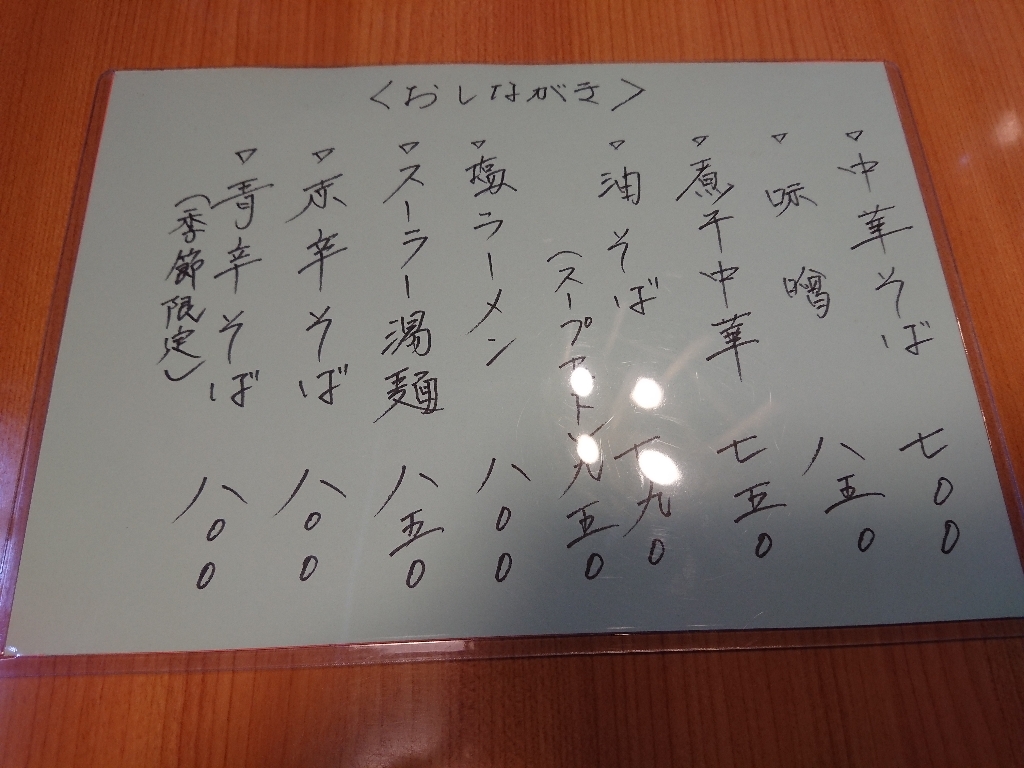 〈おしながき〉
▽中華そば 七〇〇
▽味噌 八五〇
▽煮干中華 七五〇
▽油そば 七九〇
(スープアリ) 九五〇
▽塩ラーメン 八〇〇
▽スーラー湯麺 八五〇
▽赤辛そば 八〇〇
▽青辛そば 八〇〇
(季節限定)